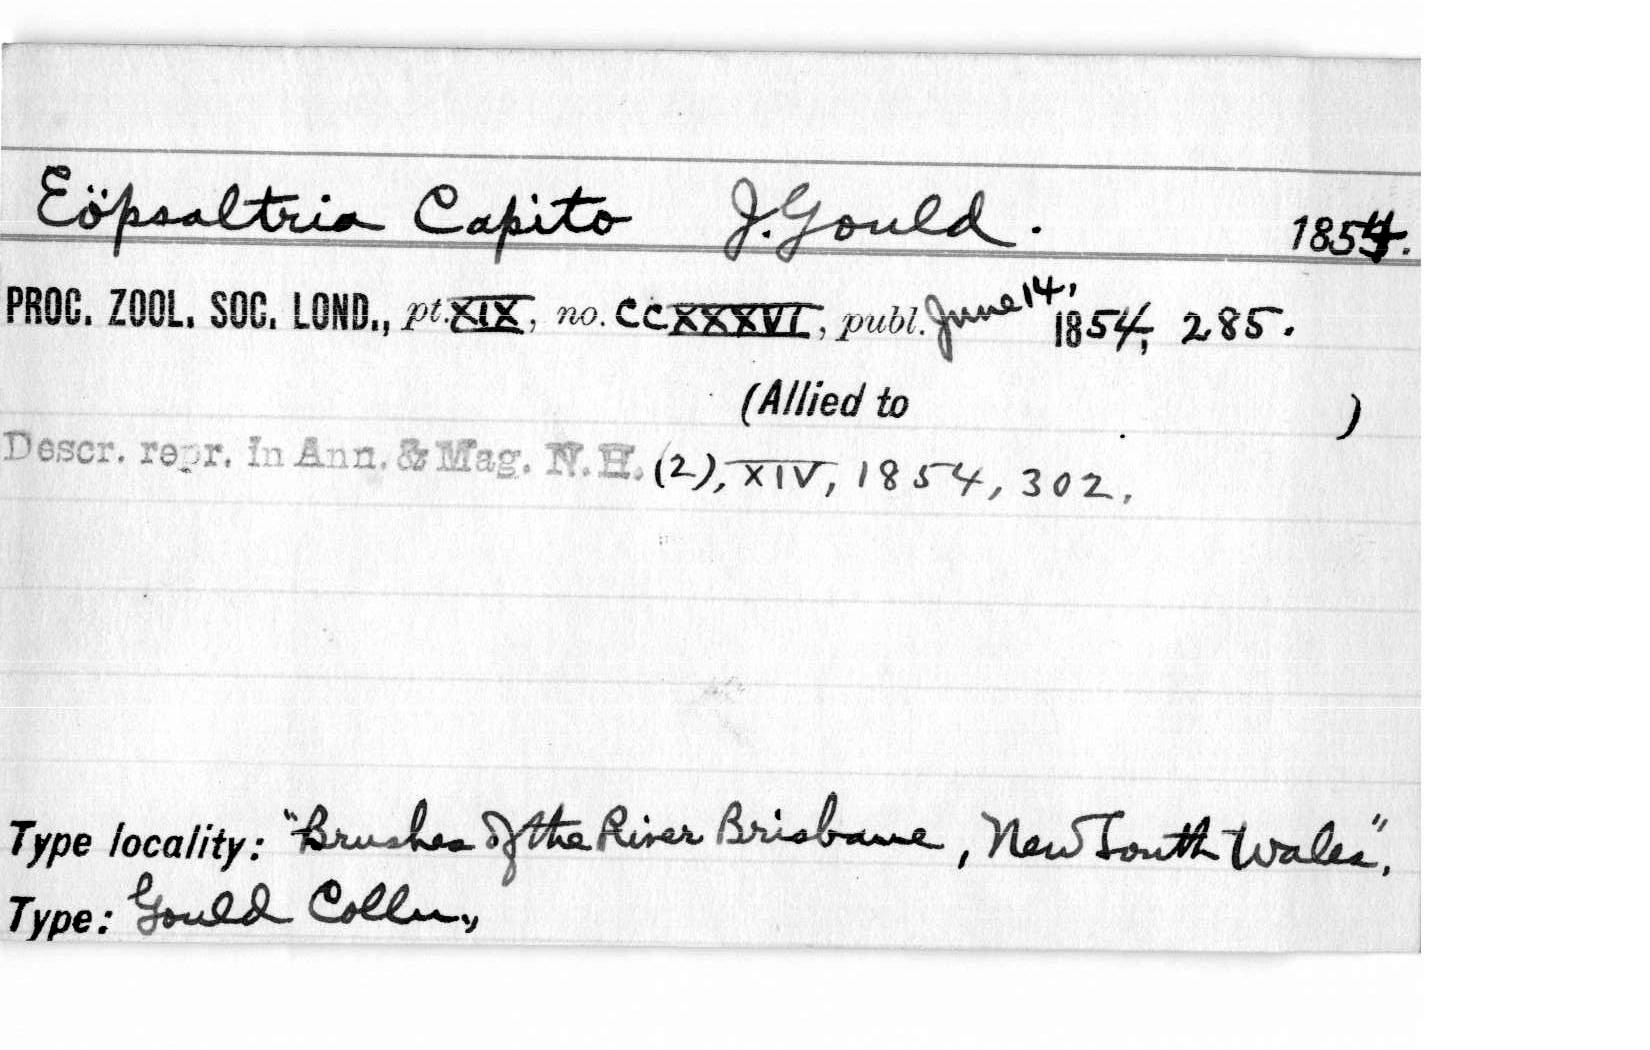 Eöpsaltria Capito J. Gould. 1854.
PROC. ZOOL. SOC. LOND., pt. XIX, no. CCXXXVI, publ. June 14, 1854, 285.
(Allied to )
Descr. repr. in Ann. & Mag. N. H. (2), XIV, 1854, 302.
Type locality: "Brushes of the River Brisbane, New South Wales",
Type: Gould Colln.,